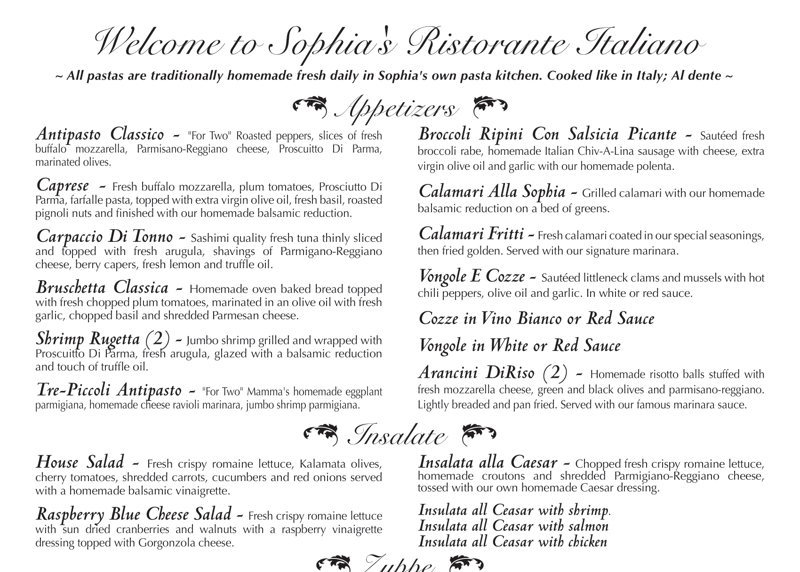 Welcome to Sophia's Ristorante Italiano
~ All pastas are traditionally homemade fresh daily in Sophia's own pasta kitchen. Cooked like in Italy; Al dente ~
Appetizers
Antipasto Classico - "For Two" Roasted peppers, slices of fresh
buffalo mozzarella, Parmisano-Reggiano cheese, Proscuitto Di Parma,
marinated olives.
Caprese - Fresh buffalo mozzarella, plum tomatoes, Prosciutto Di
Parma, farfalle pasta, topped with extra virgin olive oil, fresh basil, roasted
pignoli nuts and finished with our homemade balsamic reduction.
Carpaccio Di Tonno - Sashimi quality fresh tuna thinly sliced
and topped with fresh arugula, shavings of Parmigano-Reggiano
cheese, berry capers, fresh lemon and truffle oil.
Bruschetta Classica - Homemade oven baked bread topped
with fresh chopped plum tomatoes, marinated in an olive oil with fresh
garlic, chopped basil and shredded Parmesan cheese.
Shrimp Rugetta (2) - Jumbo shrimp grilled and wrapped with
Proscuitto Di Parma, fresh arugula, glazed with a balsamic reduction
and touch of truffle oil.
Tre-Piccoli Antipasto - "For Two" Mamma's homemade eggplant
parmigiana, homemade cheese ravioli marinara, jumbo shrimp parmigiana.
Broccoli Ripini Con Salsicia Picante - Sautéed fresh
broccoli rabe, homemade Italian Chiv-A-Lina sausage with cheese, extra
virgin olive oil and garlic with our homemade polenta.
Calamari Alla Sophia - Grilled calamari with our homemade
balsamic reduction on a bed of greens.
Calamari Fritti - Fresh calamari coated in our special seasonings,
then fried golden. Served with our signature marinara.
Vongole E Cozze - Sautéed littleneck clams and mussels with hot
chili peppers, olive oil and garlic. In white or red sauce.
Cozze in Vino Bianco or Red Sauce
Vongole in White or Red Sauce
Arancini DiRiso (2) - Homemade risotto balls stuffed with
fresh mozzarella cheese, green and black olives and parmisano-reggiano.
Lightly breaded and pan fried. Served with our famous marinara sauce.
Insalate
House Salad - Fresh crispy romaine lettuce, Kalamata olives,
cherry tomatoes, shredded carrots, cucumbers and red onions served
with a homemade balsamic vinaigrette.
Raspberry Blue Cheese Salad - Fresh crispy romaine lettuce
with sun dried cranberries and walnuts with a raspberry vinaigrette
dressing topped with Gorgonzola cheese.
Insalata alla Caesar - Chopped fresh crispy romaine lettuce,
homemade croutons and shredded Parmigiano-Reggiano cheese,
tossed with our own homemade Caesar dressing.
Insulata all Ceasar with shrimp.
Insulata all Ceasar with salmon
Insulata all Ceasar with chicken
Zuppe